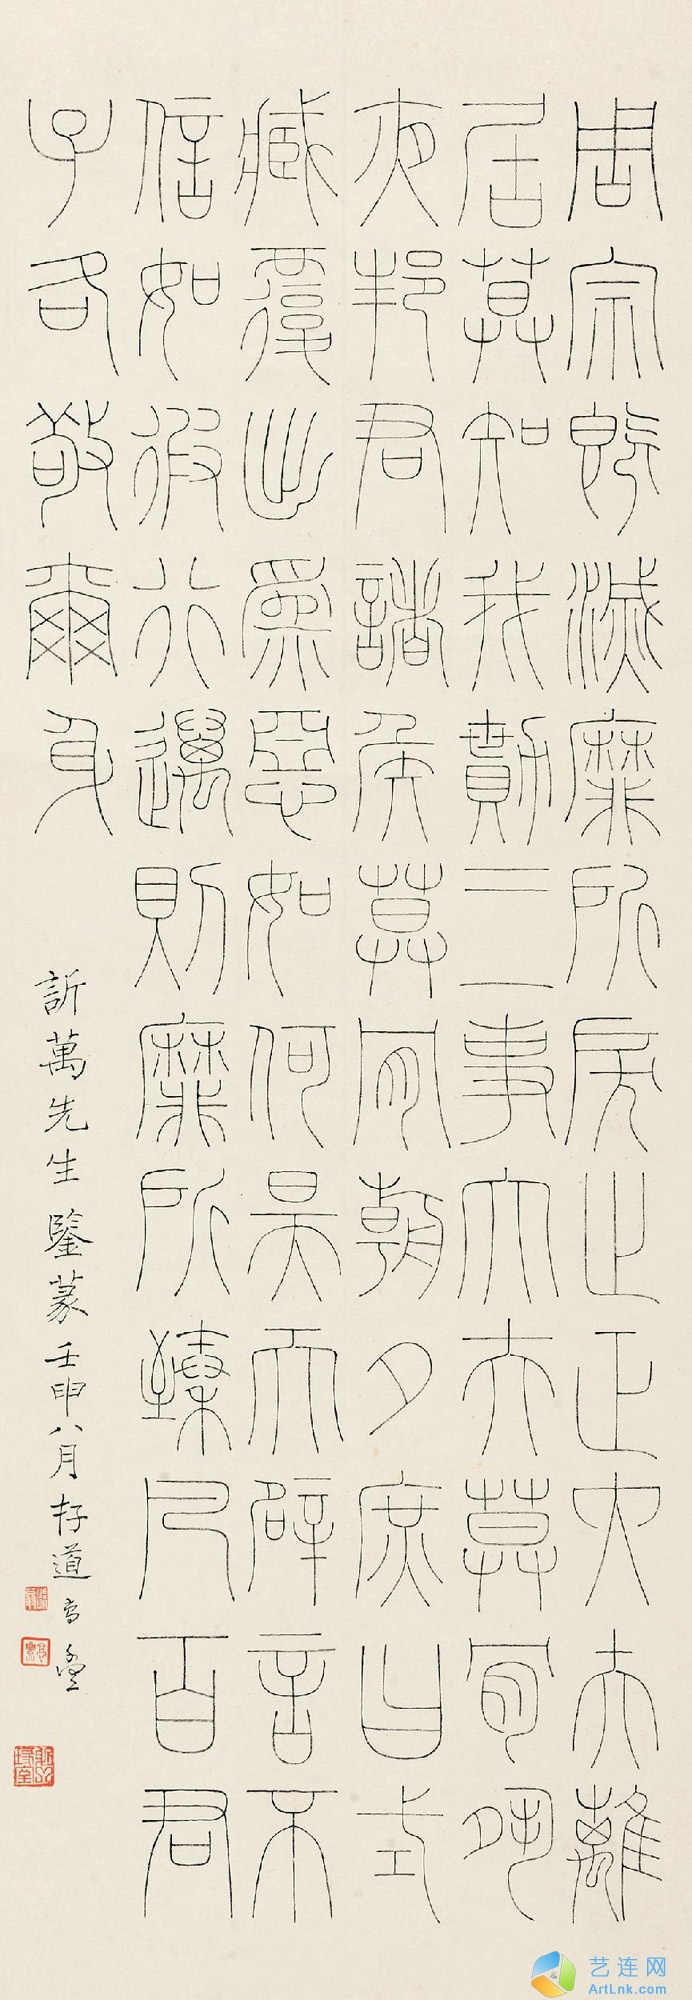 周宗既滅靡所戾止正大夫離
居莫知我勩三事大夫莫肯夙
夜邦君諸侯莫肯朝夕庶曰式
臧覆出為惡如何昊天辟言不
信如彼行邁則靡所臻凡百君
子各敬爾身
訢萬先生鑒篆壬申八月存道高
艺连网
ArtLnk.com